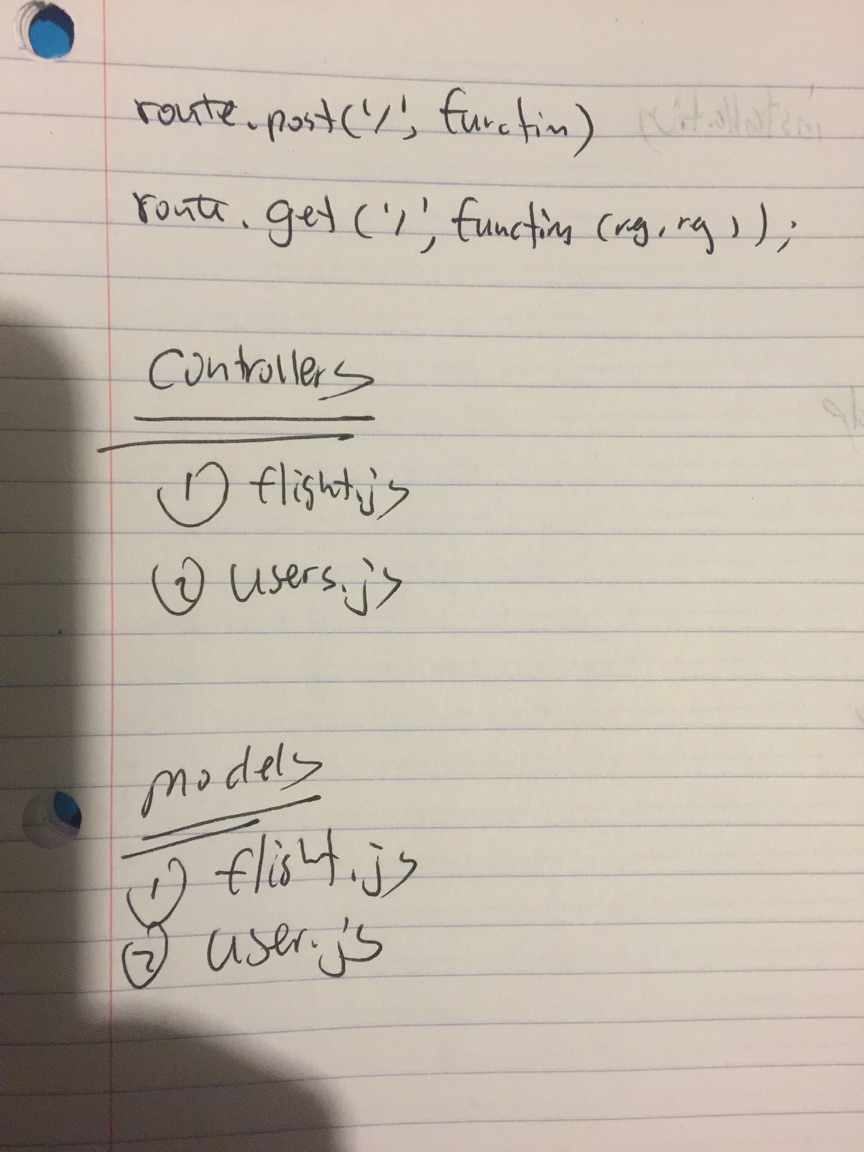 route.post('/', function)
route.get('/', function (req, req));
Controllers
① flight.js
② users.js
models
① flight.js
② user.js